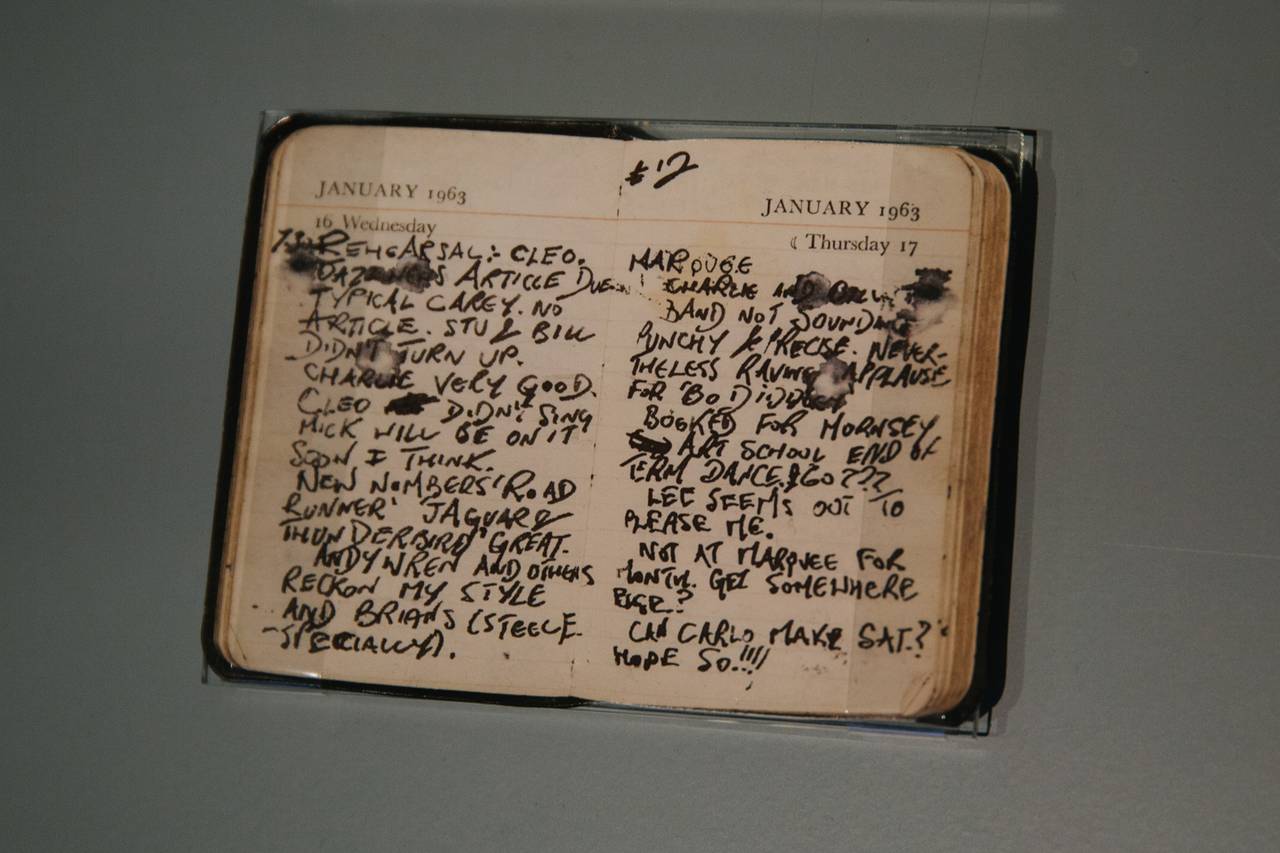 JANUARY 1963
16 Wednesday
REHEARSAL:- CLEO.
ARTICLE
TYPICAL CAREY. NO
ARTICLE. STU & BILL
DIDN'T TURN UP.
CHARLIE VERY GOOD.
CLEO DIDN'T SING
MICK WILL BE ON IT
SOON I THINK.
NEW NUMBERS 'ROAD
RUNNER' JAGUAR &
THUNDERBIRD' GREAT.
ANDY WREN AND OTHERS
RECKON MY STYLE
AND BRIANS (STEELE
SPECIALLY).
£12
JANUARY 1963
Thursday 17
MARQUEE
CHARLIE AND
BAND NOT SOUNDING
PUNCHY & PRECISE. NEVER-
THELESS RAVING APPLAUSE
FOR 'BO DIDDLEY
BOOKED FOR HORNSEY
ART SCHOOL END OF
TERM DANCE. £60???
SEEMS OUT TO
PLEASE ME.
NOT AT MARQUEE FOR
MONTH. GET SOMEWHERE
CAN CARLO MAKE SAT.?
HOPE SO.!!!!